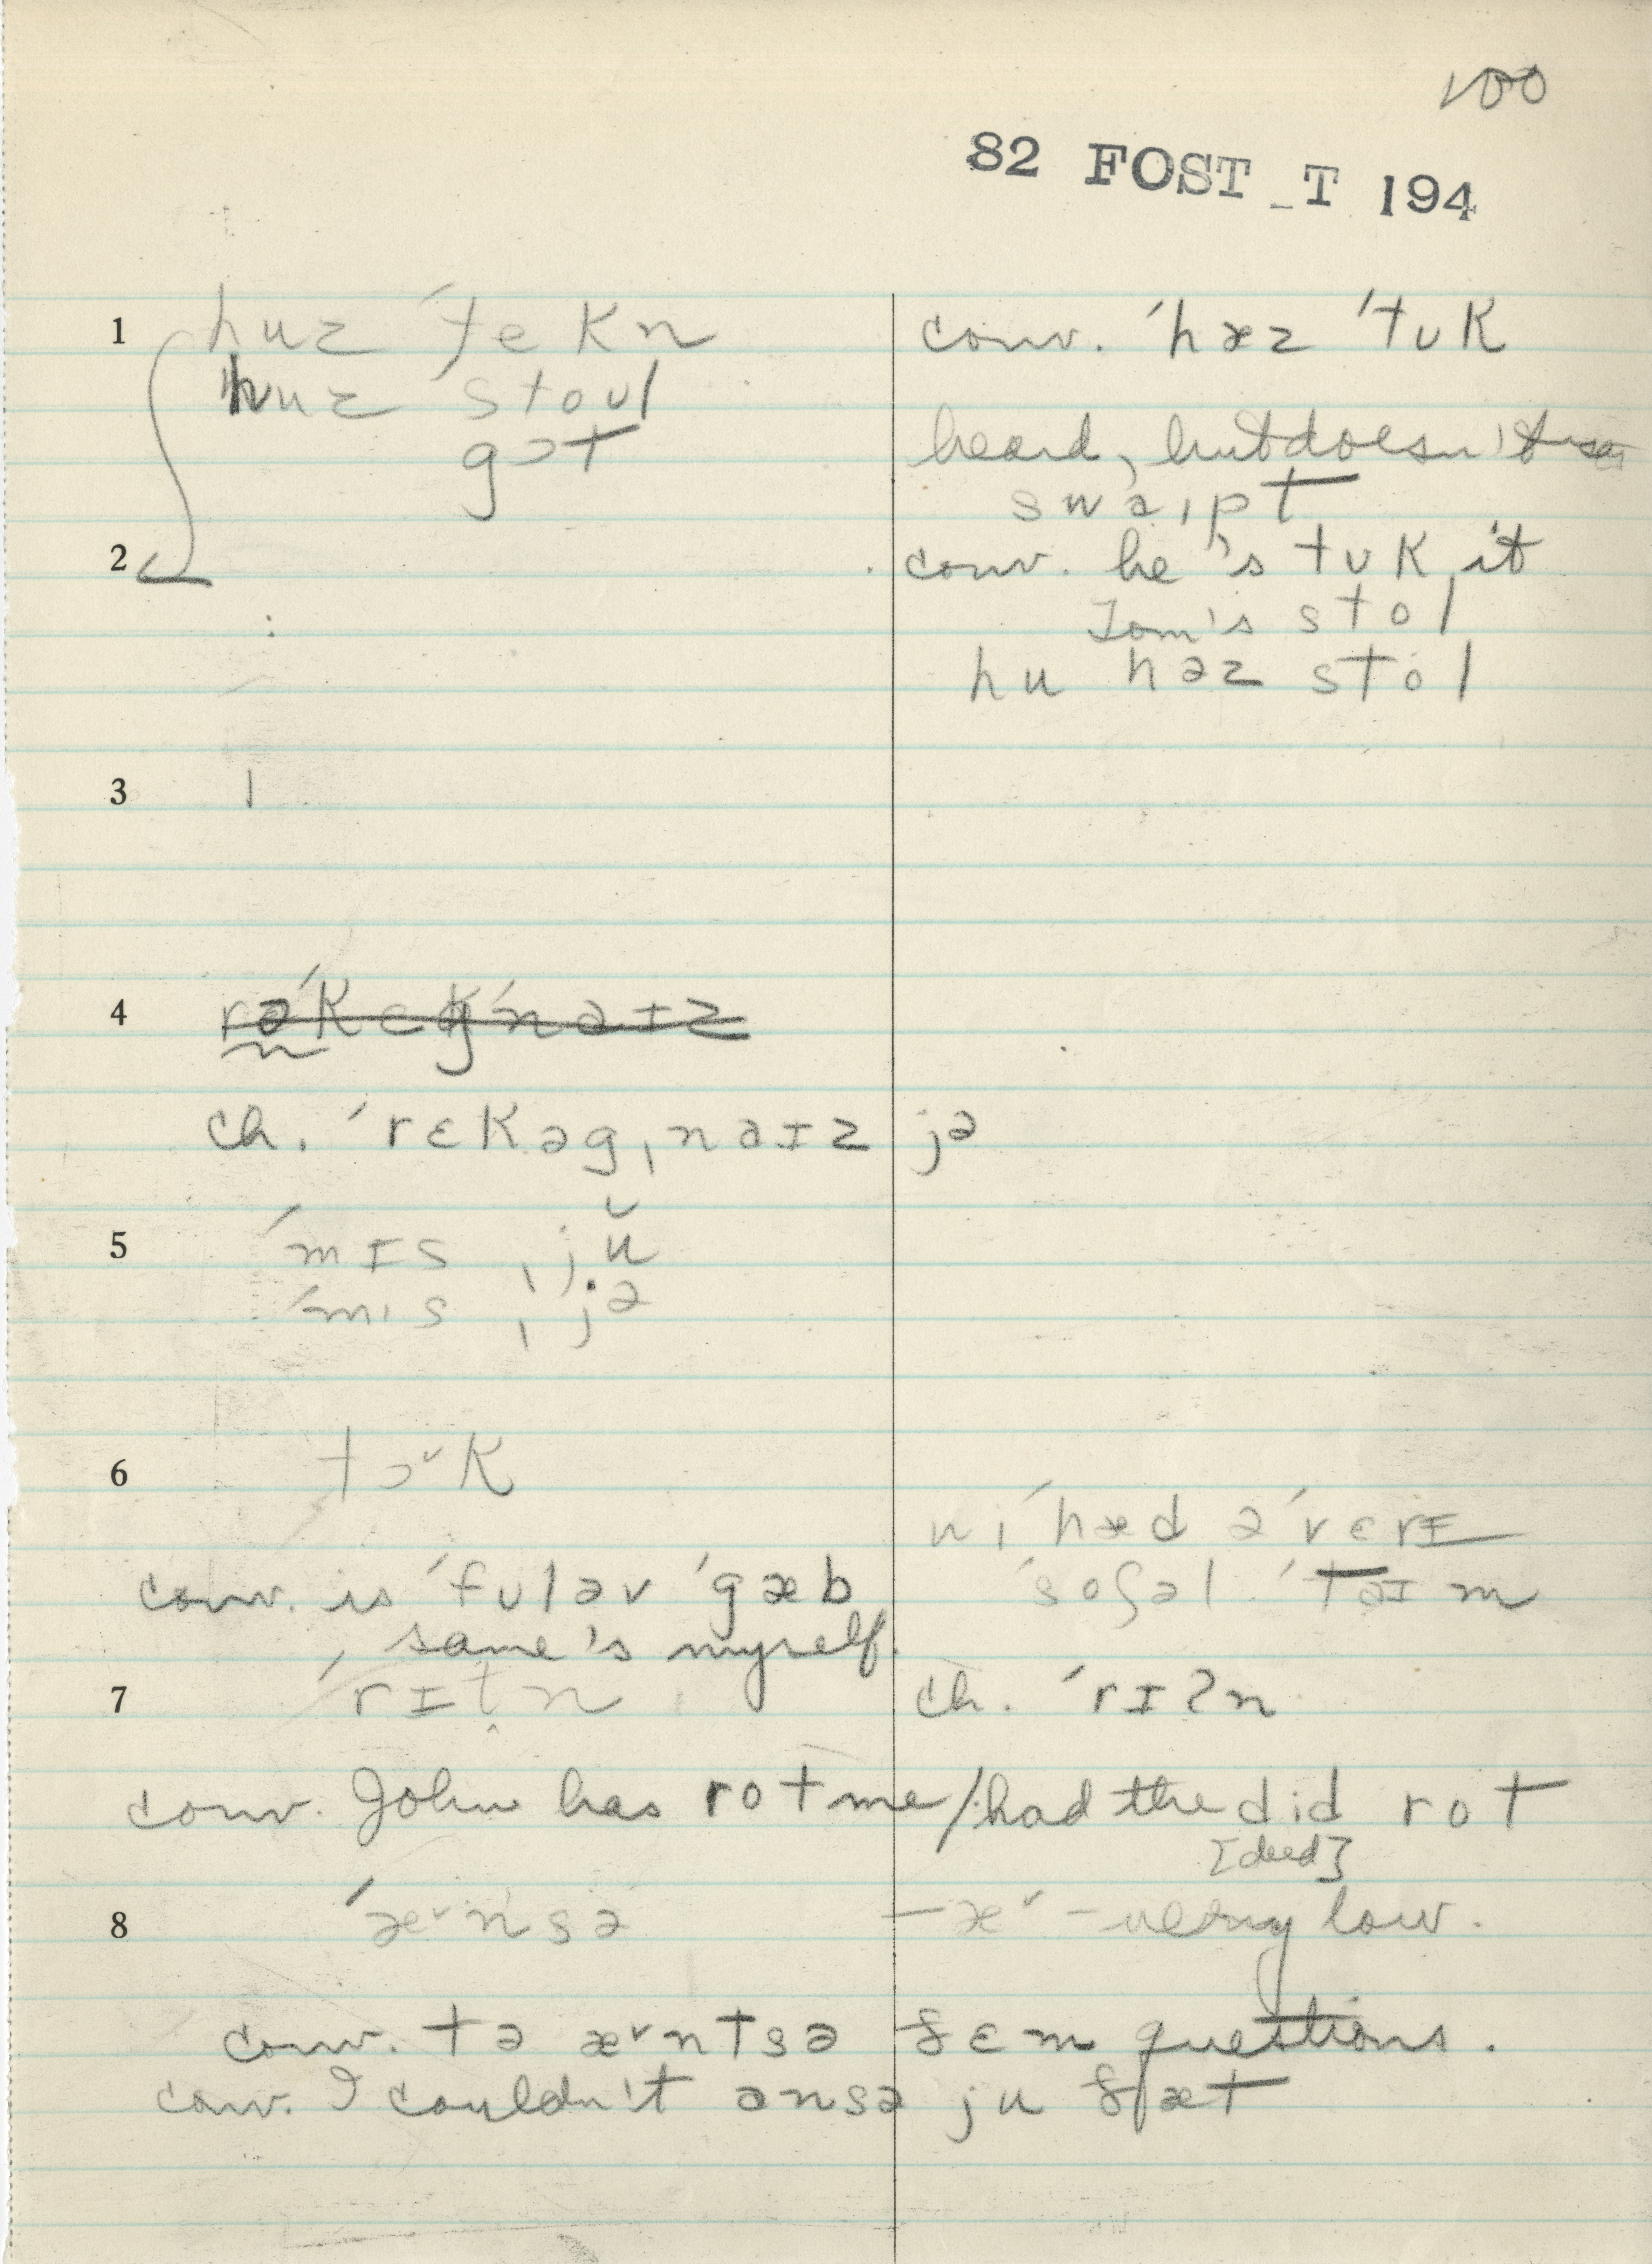 100
82 FOST_T 194
1 huz ˈtekn
conv. ˈhæz ˈtʊk
huz stoʊl
gɔt
heard, but doesn't use
swaɪpt
2
conv. he's tʊk it
Tom's stol
hu həz stol
3
4 rəˈkɛgˈnaɪz
ch. ˈrɛkəgˌnaɪz jə
5 ˈmɪs ˌjŭ
ˈmɪs ˌjə
6 tɔ˅k
wiˈhæd əˈvɛrɪ
conv. is ˈfʊləv ˈgæb
ˈsoʃəl ˈtaɪm
same's myself.
7 ˈrɪt̬n
ch. ˈrɪʔn
conv. John has rot me / had the did rot
[deed]
8 ˈæ˅nsə
– æ˅ – very low.
conv. tə æ˅ntsə ðɛm questions.
conv. I couldn't ansə ju ðæt